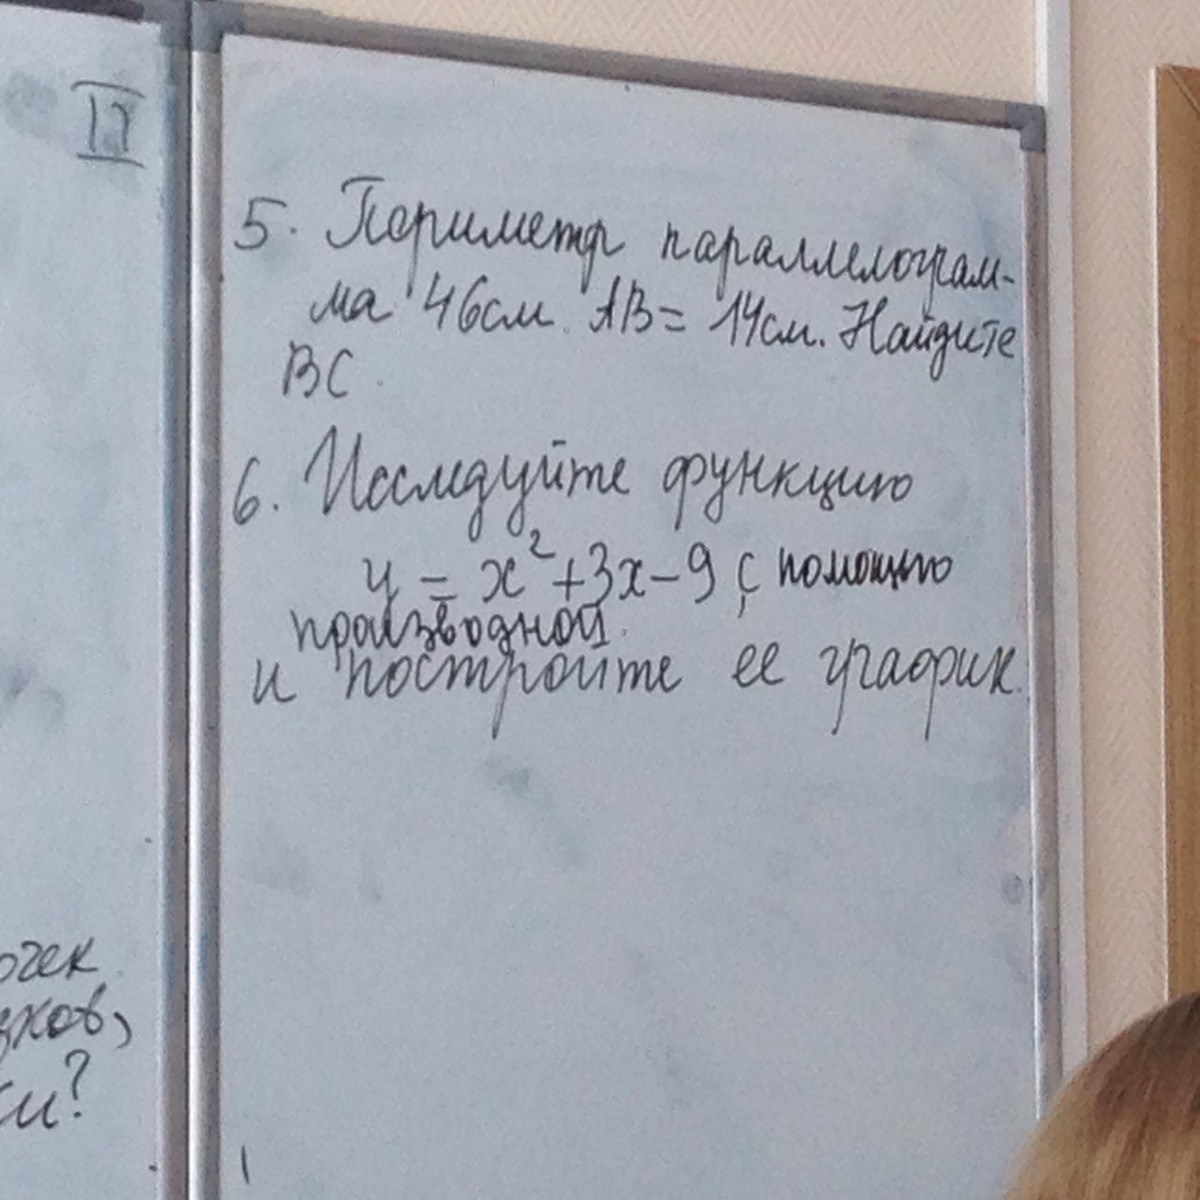 II
очек
ков,
ки?
5. Периметр параллелограм-
ма 46см. AB = 14см. Найдите
BC.
6. Исследуйте функцию
y = x² + 3x - 9 с помощью
производной.
и постройте ее график.